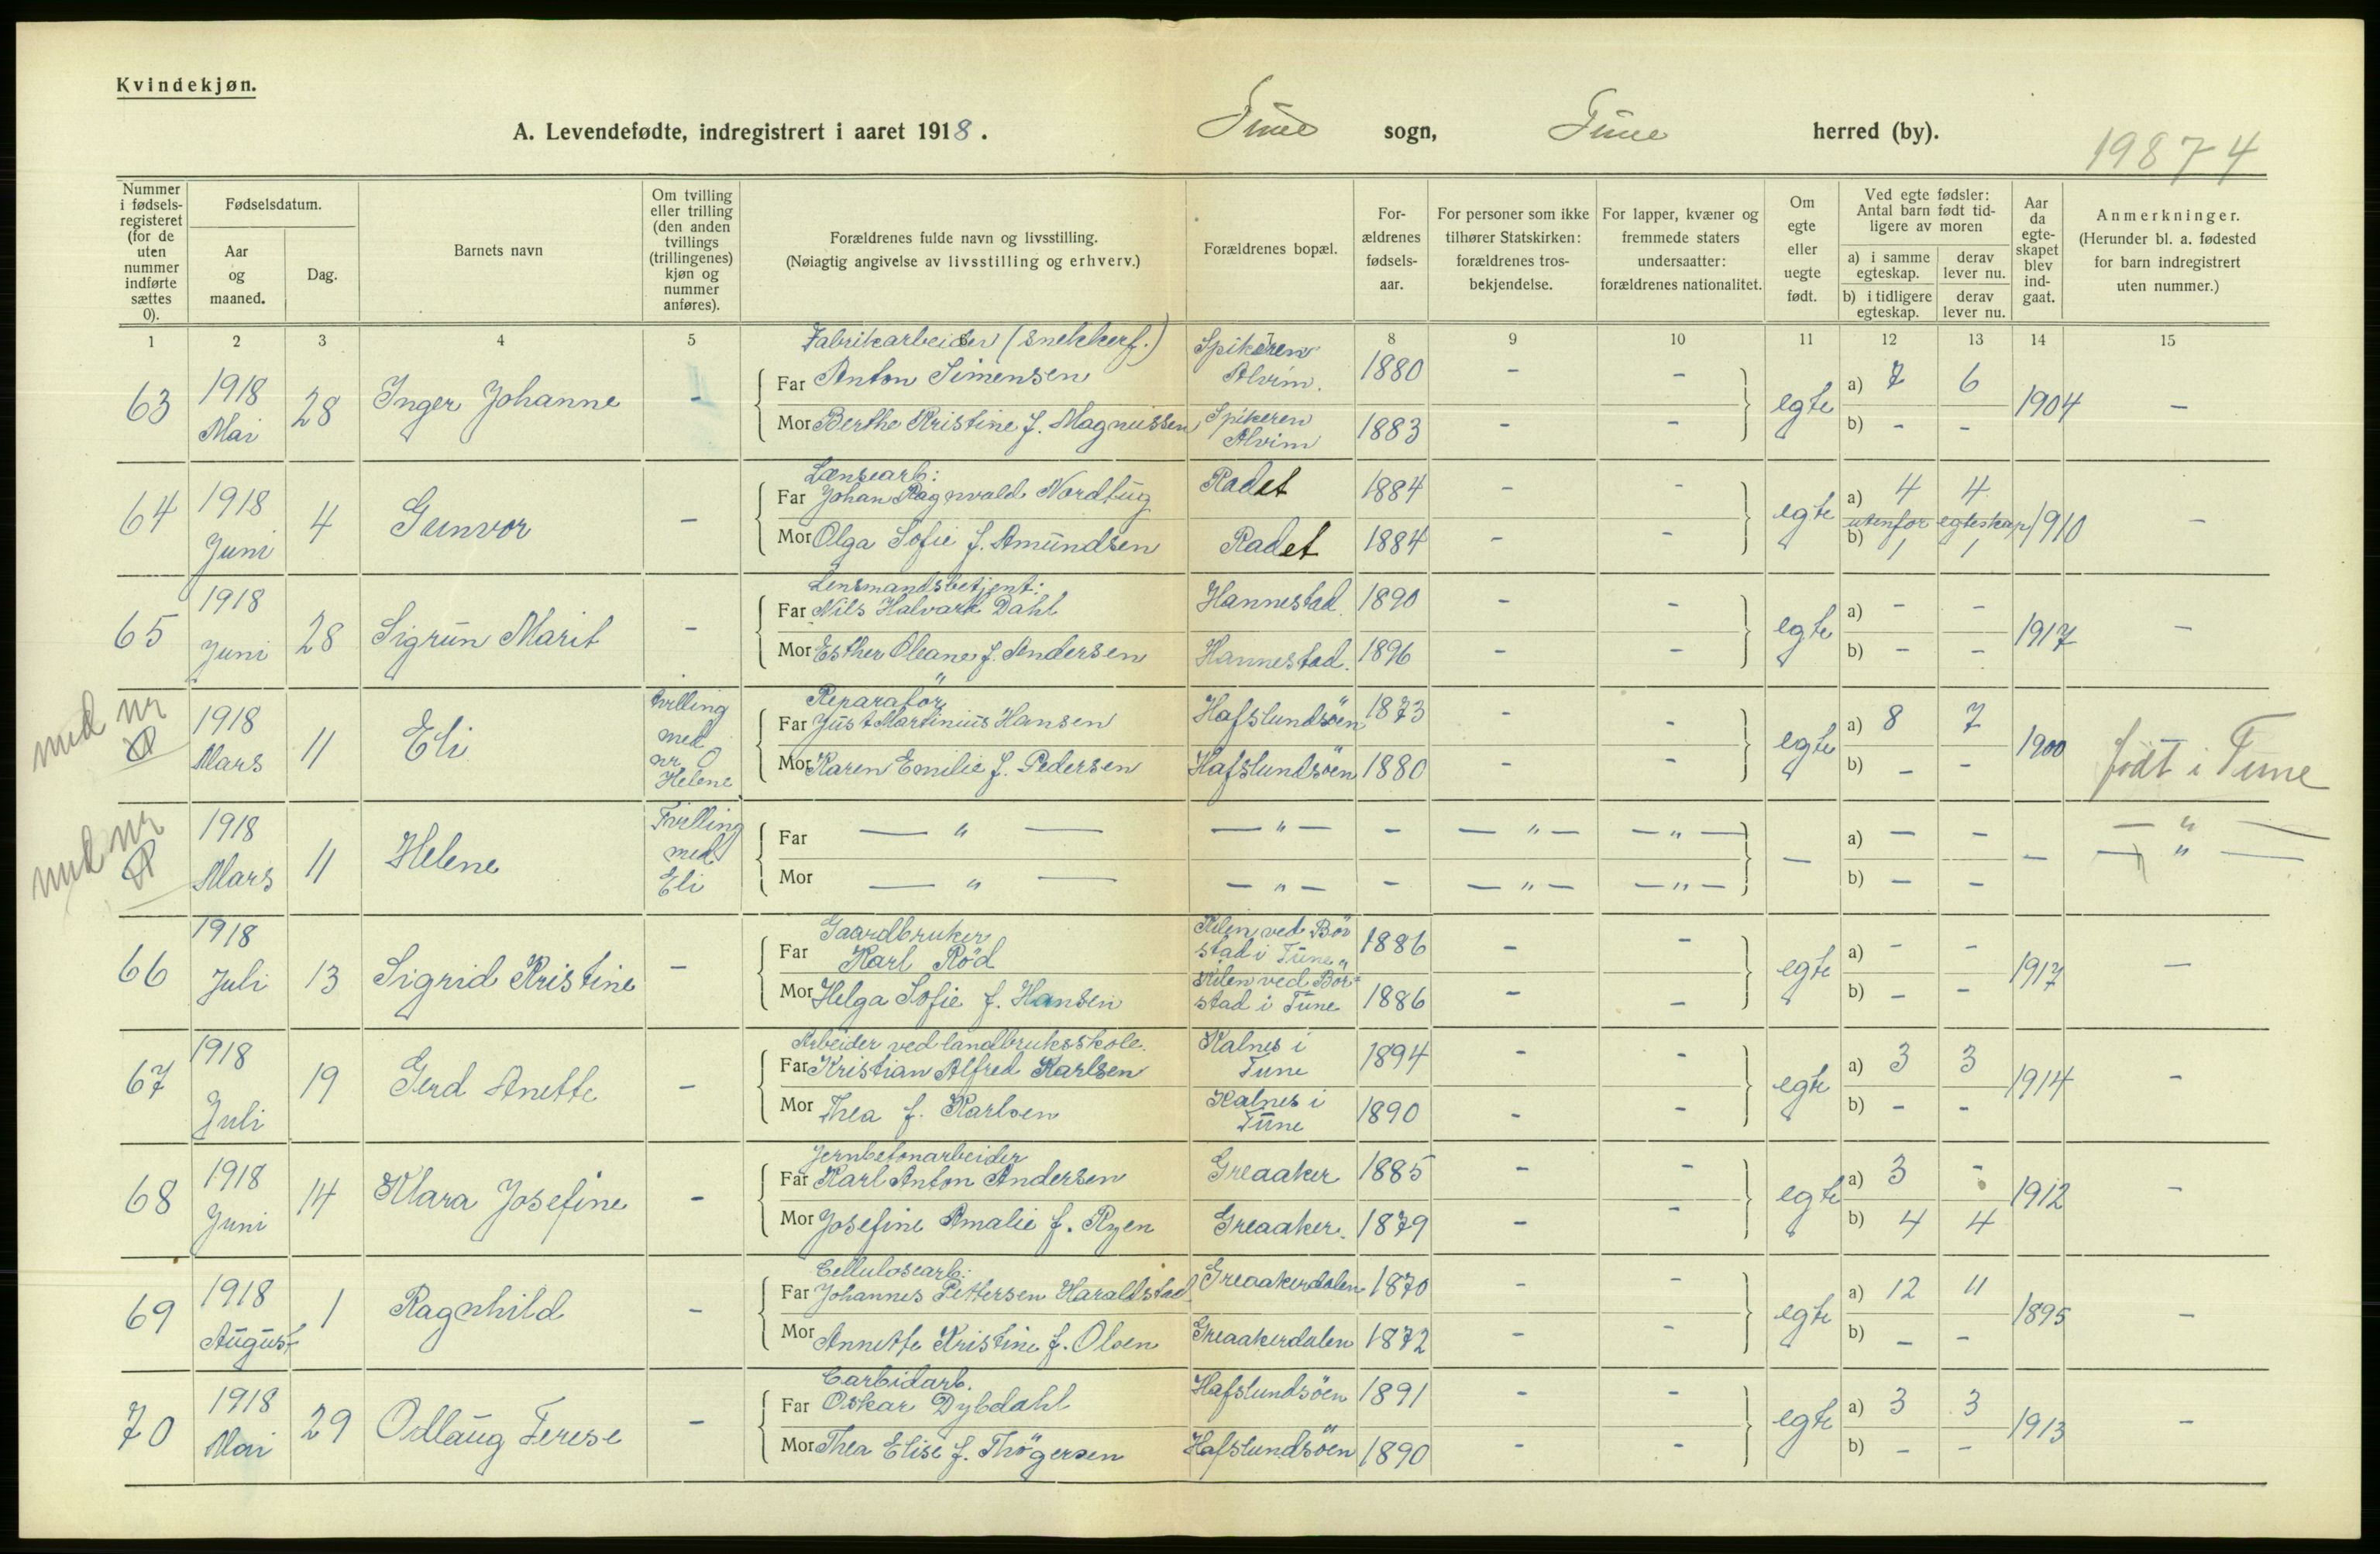 Kvindekjøn.
A. Levendefødte, indregistrert i aaret 1918. Tune sogn, Tune herred (by).
19874
Nummer i fødsels-registeret (for de uten nummer indførte sættes 0).
Fødselsdatum.
Aar og maaned.
Dag.
Barnets navn
Om tvilling eller trilling (den anden tvillings (trillingenes) kjøn og nummer anføres).
Forældrenes fulde navn og livsstilling.
(Nøiagtig angivelse av livsstilling og erhverv.)
Forældrenes bopæl.
For-ældrenes fødsels-aar.
For personer som ikke tilhører Statskirken: forældrenes tros-bekjendelse.
For lapper, kvæner og fremmede staters undersaatter: forældrenes nationalitet.
Om egte eller uegte født.
Ved egte fødsler: Antal barn født tid-ligere av moren
a) i samme egteskap.
derav lever nu.
b) i tidligere egteskap.
derav lever nu.
Aar da egte-skapet blev ind-gaat.
Anmerkninger.
(Herunder bl. a. fødested for barn indregistrert uten nummer.)
1 2 3 4 5 8 9 10 11 12 13 14 15
Fabrikarbeider (snekkerf.)
63 1918 Mai 28 Inger Johanne -
Far Anton Simensen Spikeren Alvim. 1880 - - egte a) 7 6 1904 -
Mor Berthe Kristine f. Magnussen Spikeren Alvim 1883 - - b) - -
Lænsearb:
64 1918 Juni 4 Gunvor -
Far Johan Ragnvald Nordbug Radet 1884 - - egte a) 4 4 1910 -
utenfor egteskap
Mor Olga Sofie f. Amundsen Radet 1884 - - b) 1 1
Lensmandsbetjent:
65 1918 Juni 28 Sigrun Marit -
Far Nils Halvard Dahl Hannestad 1890 - - egte a) - - 1917 -
Mor Esther Oleane f. Andersen Hannestad. 1896 - - b) - -
Reparatör
med nr 0 1918 Mars 11 Eli Tvilling med nr. 0 Helene
Far Just Martinius Hansen Hafslundsöen 1873 - - egte a) 8 7 1900 født i Tune
Mor Karen Emilie f. Pedersen Hafslundsöen 1880 - - b) - -
med nr 0 1918 Mars 11 Helene Tvilling med Eli
Far — " — — " — - — " — — " — — a) - - - — " —
Mor — " — — " — - — " — — " — b) - - — " —
Gaardbruker
66 1918 Juli 13 Sigrid Kristine -
Far Karl Röd Kilen ved Bör stad i Tune 1886 - - egte a) - - 1917 -
Mor Helga Sofie f. Hansen Kilen ved Bör= stad i Tune 1886 - - b) - -
Arbeider ved landbruksskole.
67 1918 Juli 19 Gerd Anette -
Far Kristian Alfred Karlsen Kalnes i Tune 1894 - - egte a) 3 3 1914 -
Mor Thea f. Karlsen Kalnes i Tune 1890 - - b) - -
Jernbetonarbeider
68 1918 Juni 14 Klara Josefine -
Far Karl Anton Andersen Greaaker 1885 - - egte a) 3 - 1912 -
Mor Josefine Amalie f. Ryen Greaaker. 1879 - - b) 4 4
Cellulosearb:
69 1918 August 1 Ragnhild -
Far Johannes Pettersen Haraldstad Greaakerdalen 1870 - - egte a) 12 11 1895 -
Mor Annette Kristine f. Olsen Greaakerdalen 1872 - - b) - -
Carbidarb.
70 1918 Mai 29 Odlaug Terese -
Far Oskar Dybdahl Hafslundsöen 1891 - - egte a) 3 3 1913 -
Mor Thea Elise f. Thögersen Hafslundsöen 1890 - - b) - -